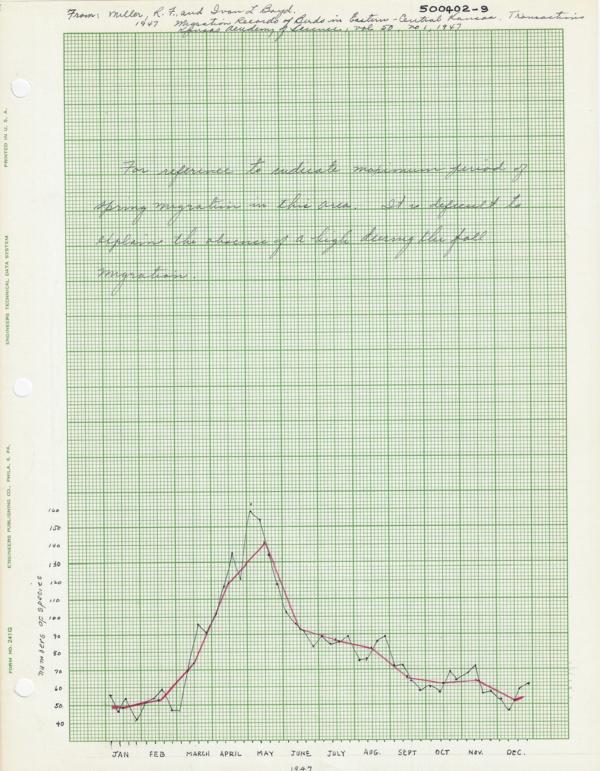 From: Miller, R. F. and Ivan L Boyd.
500402-9
1947 Migration Records of Birds in Eastern-Central Kansas. Transactions
Kansas Academy of Science, vol. 50 no 1, 1947
PRINTED IN U. S. A.
ENGINEERS TECHNICAL DATA SYSTEM
ENGINEERS PUBLISHING CO., PHILA. 5, PA.
FORM NO. 241G
For reference to indicate maximum period of
spring migration in this area. It is deficult to
explain the absence of a high during the fall
migration.
numbers of species
160
150
140
130
120
110
100
90
80
70
60
50
40
JAN FEB MARCH APRIL MAY JUNE JULY AUG. SEPT OCT NOV. DEC.
1947